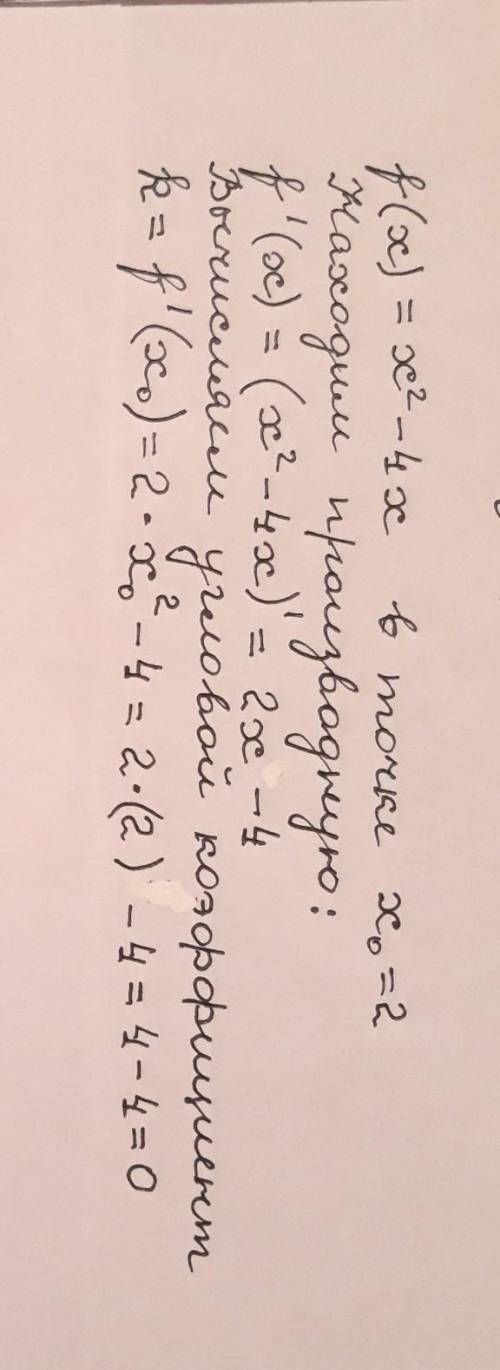 f(x) = x² - 4x в точке x₀ = 2
Находим производную:
f'(x) = (x² - 4x)' = 2x - 4
Вычисляем угловой коэффициент
k = f'(x₀) = 2 · x₀² - 4 = 2·(2) - 4 = 4 - 4 = 0